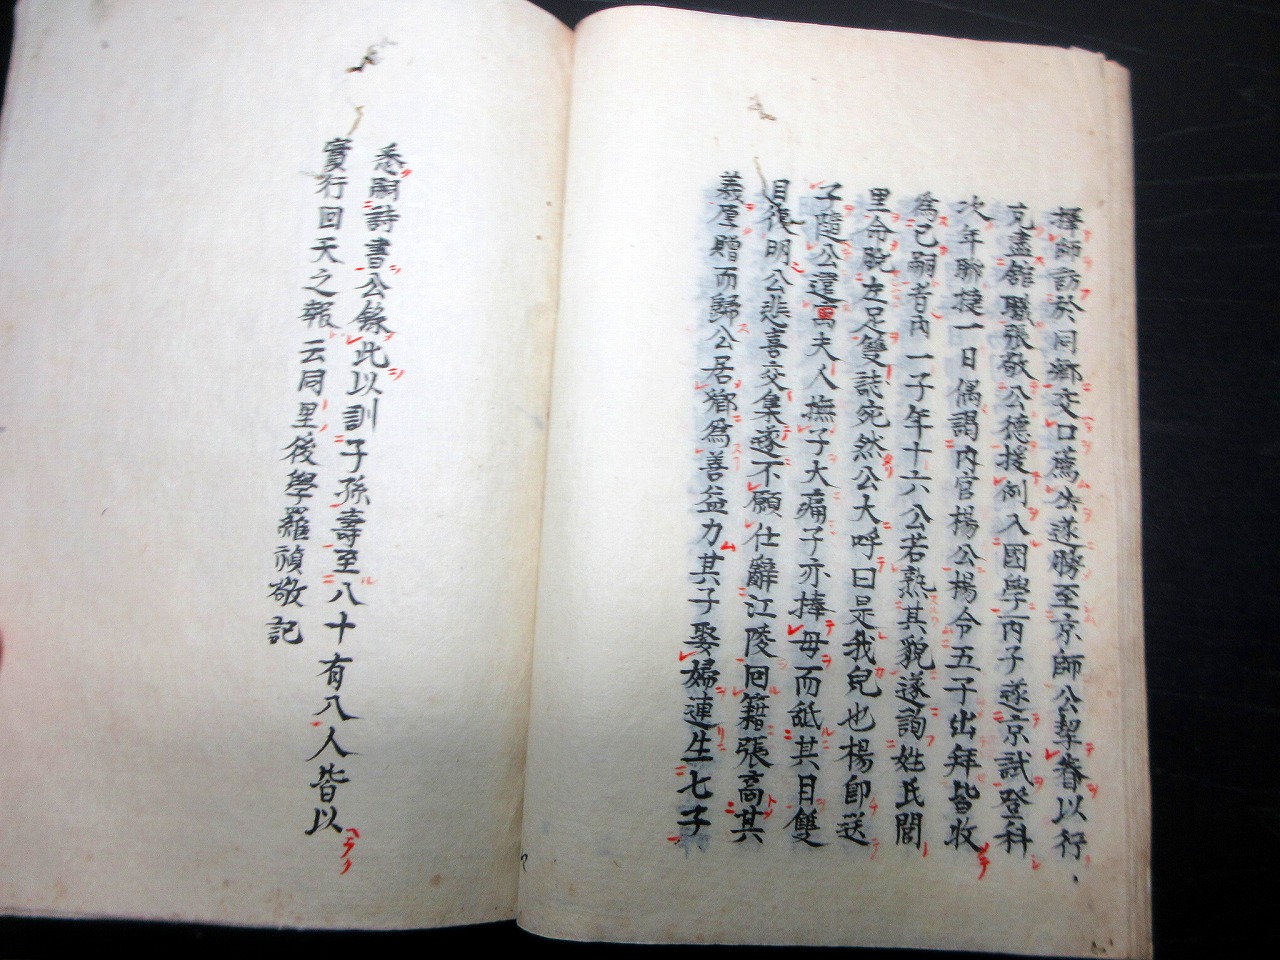 擇師訪於同鄉交口薦公遂聘至京師公挈眷以行
克盡館職張敬公德援例入國學丙子遂京試登科
次年聯捷一日偶謁內官楊公楊令五子出拜皆收
為己嗣者內一子年十六公若熟其貌遂詢姓氏閭
里命脫左足雙誌宛然公大呼曰是我兒也楊即送
子隨公還寓夫人撫子大痛子亦捧母而舐其目雙
目復明公悲喜交集遂不願仕辭江陵回籍張高其
義厚贈而歸公居鄉為善益力其子娶婦連生七子
悉嗣詩書公錄此以訓子孫壽至八十有八人皆以
實行回天之報云同里後學羅禎敬記